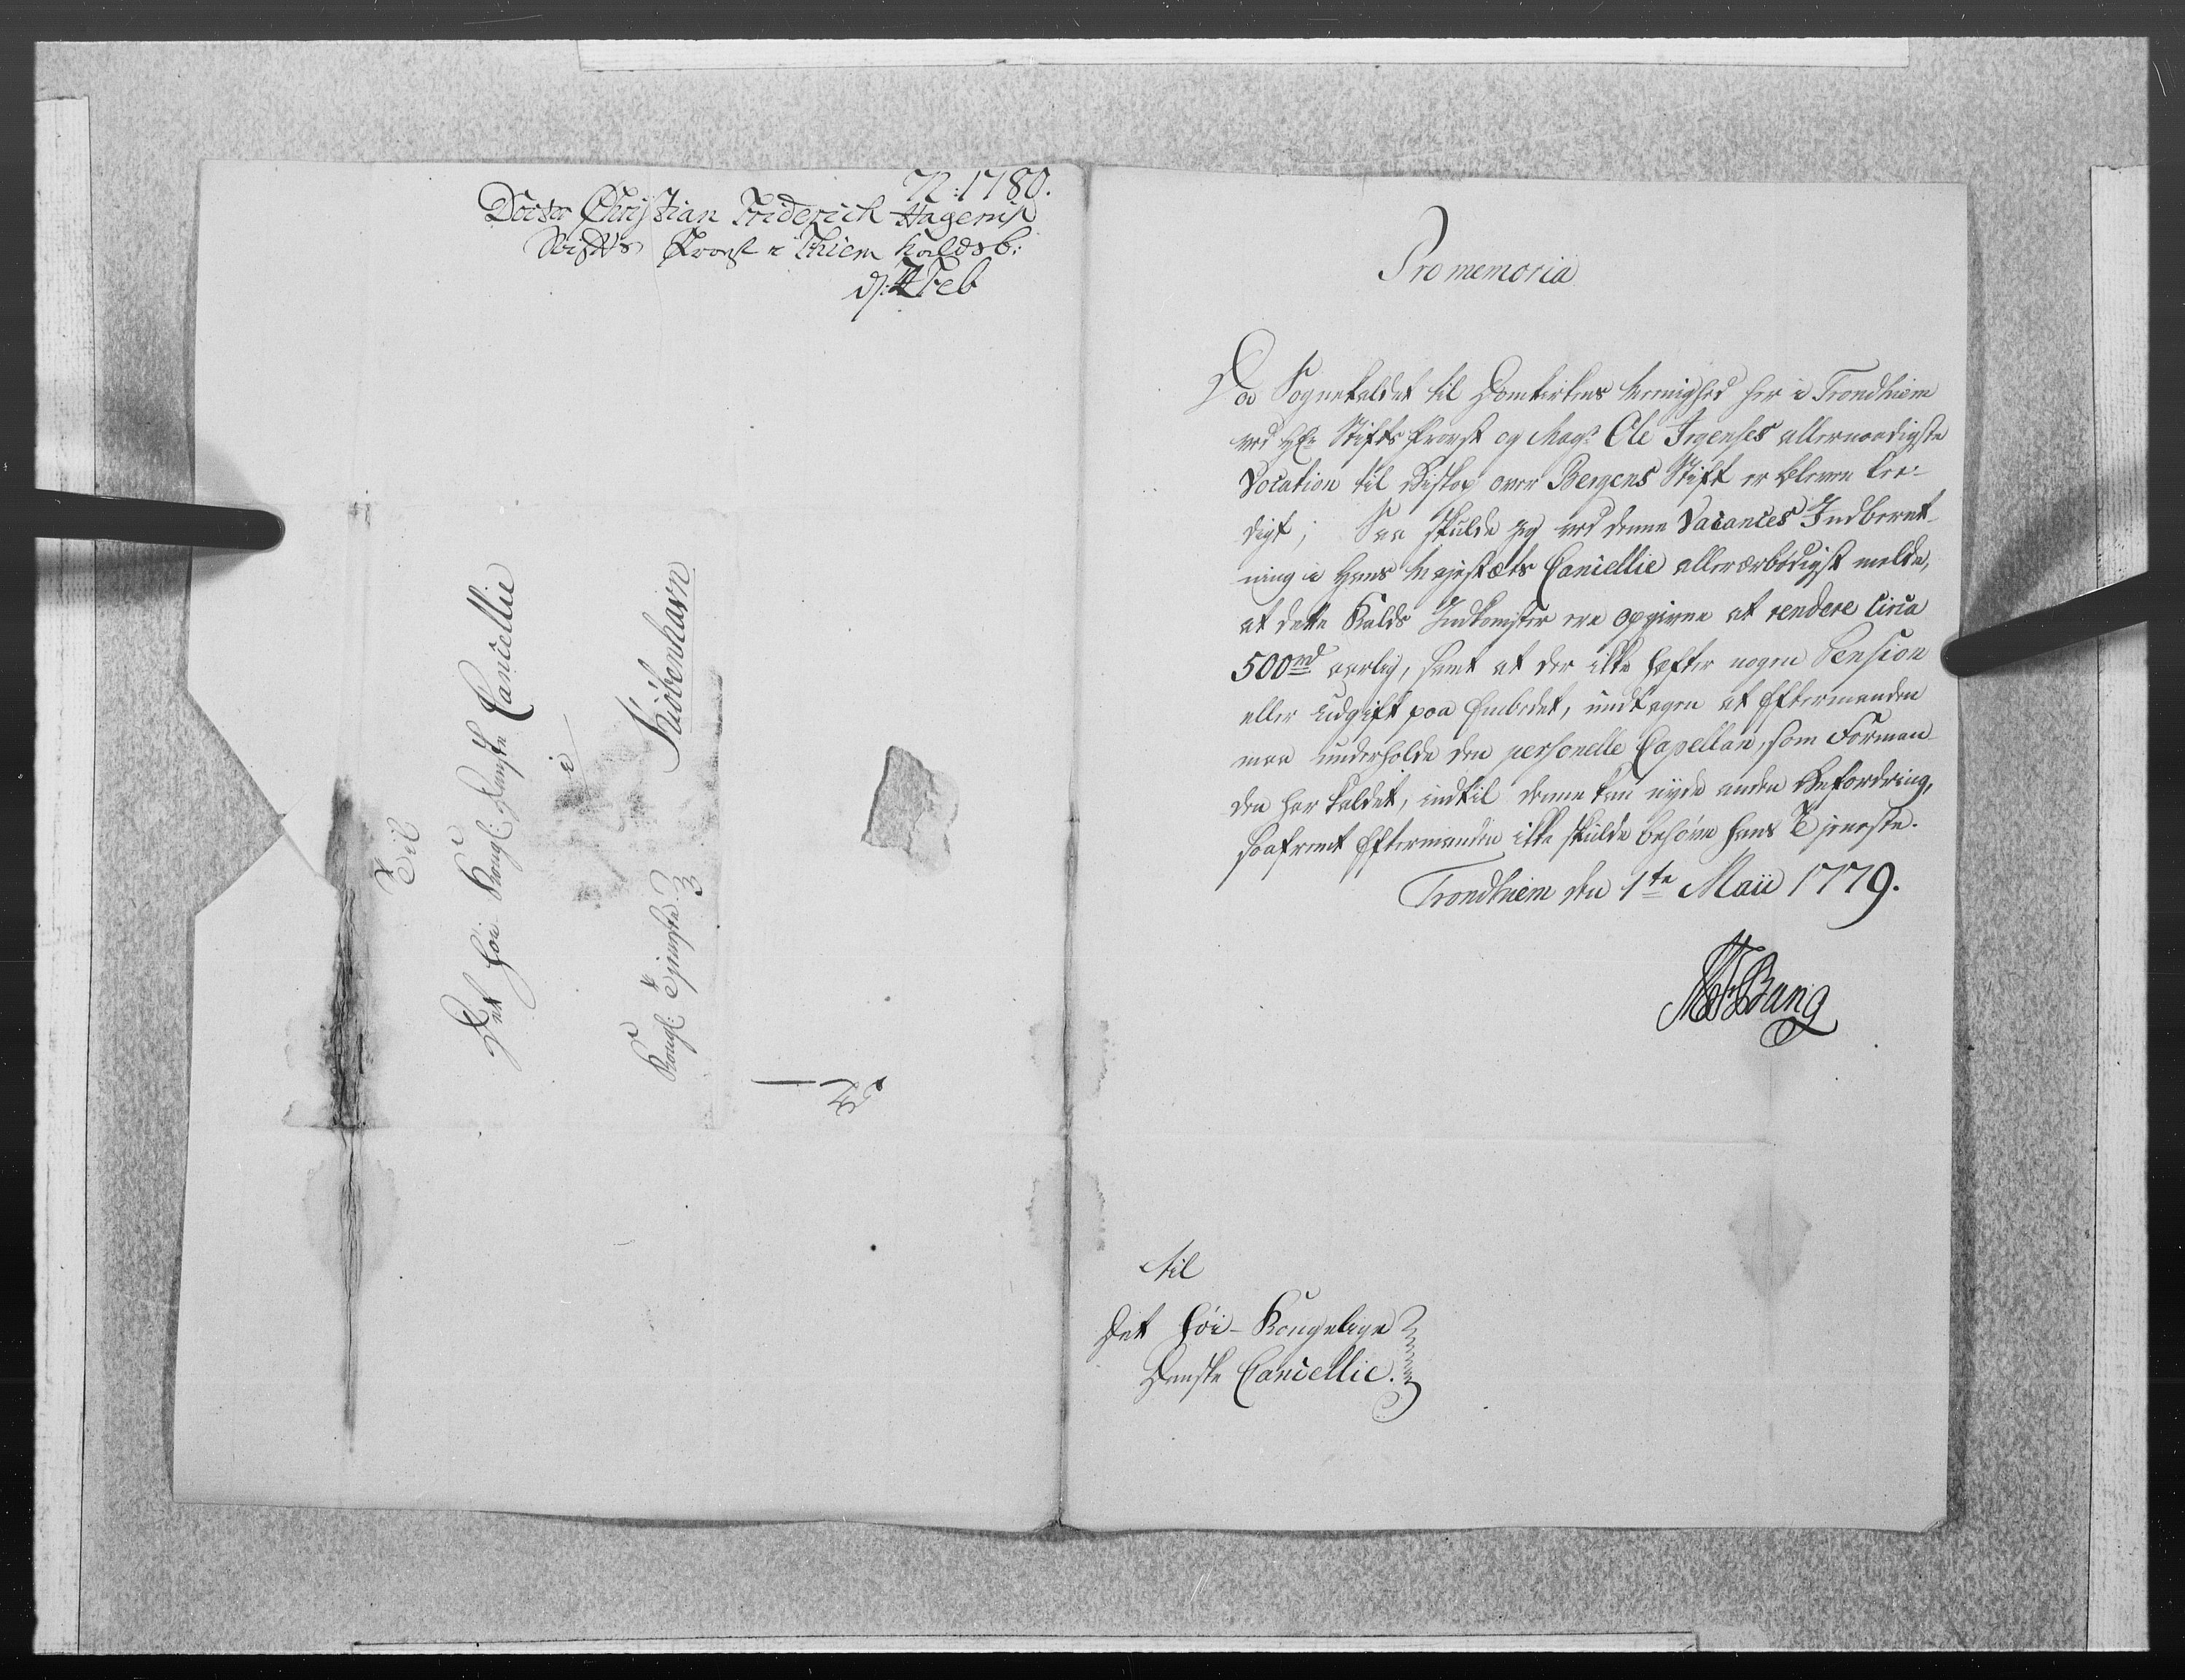 72: 1780.
Doctor Christian Friderich Hagerup
Stifts Provst i Thiem kaldsb:
d: 4 Feb
Til
Det Høi Kongl: Danske Cancellie
i
Kiöbenhavn
Kongl: Tjeneste
Promemoria
Da Sognekaldet til Domkirkens Menighed her i Trondhiem
ved Hr Stifts Provst og Magr Ole Irgenses allernaadigste
Vocation til Biskop over Bergens Stift er bleven lee-
digt; Saa skulde jeg ved denne Vacances Indberet-
ning i Hans Majestæts Cancellie allerærbödigst melde,
at dette Kalds Indkomster ere opgivne at rendere circa
500rd aarlig, samt at der ikke hefter nogen Pension
eller Udgift paa Embedet, undtagen at Eftermanden
maa underholde den personelle Capellan, som Forman-
den har kaldet, indtil denne kan nyde anden Befordring,
saafremt Eftermanden ikke skulde behöve hans Tjeneste.
Trondhiem den 1te Maii 1779.
MF Bang
til
Det Höi-Kongelige
Danske Cancellie.